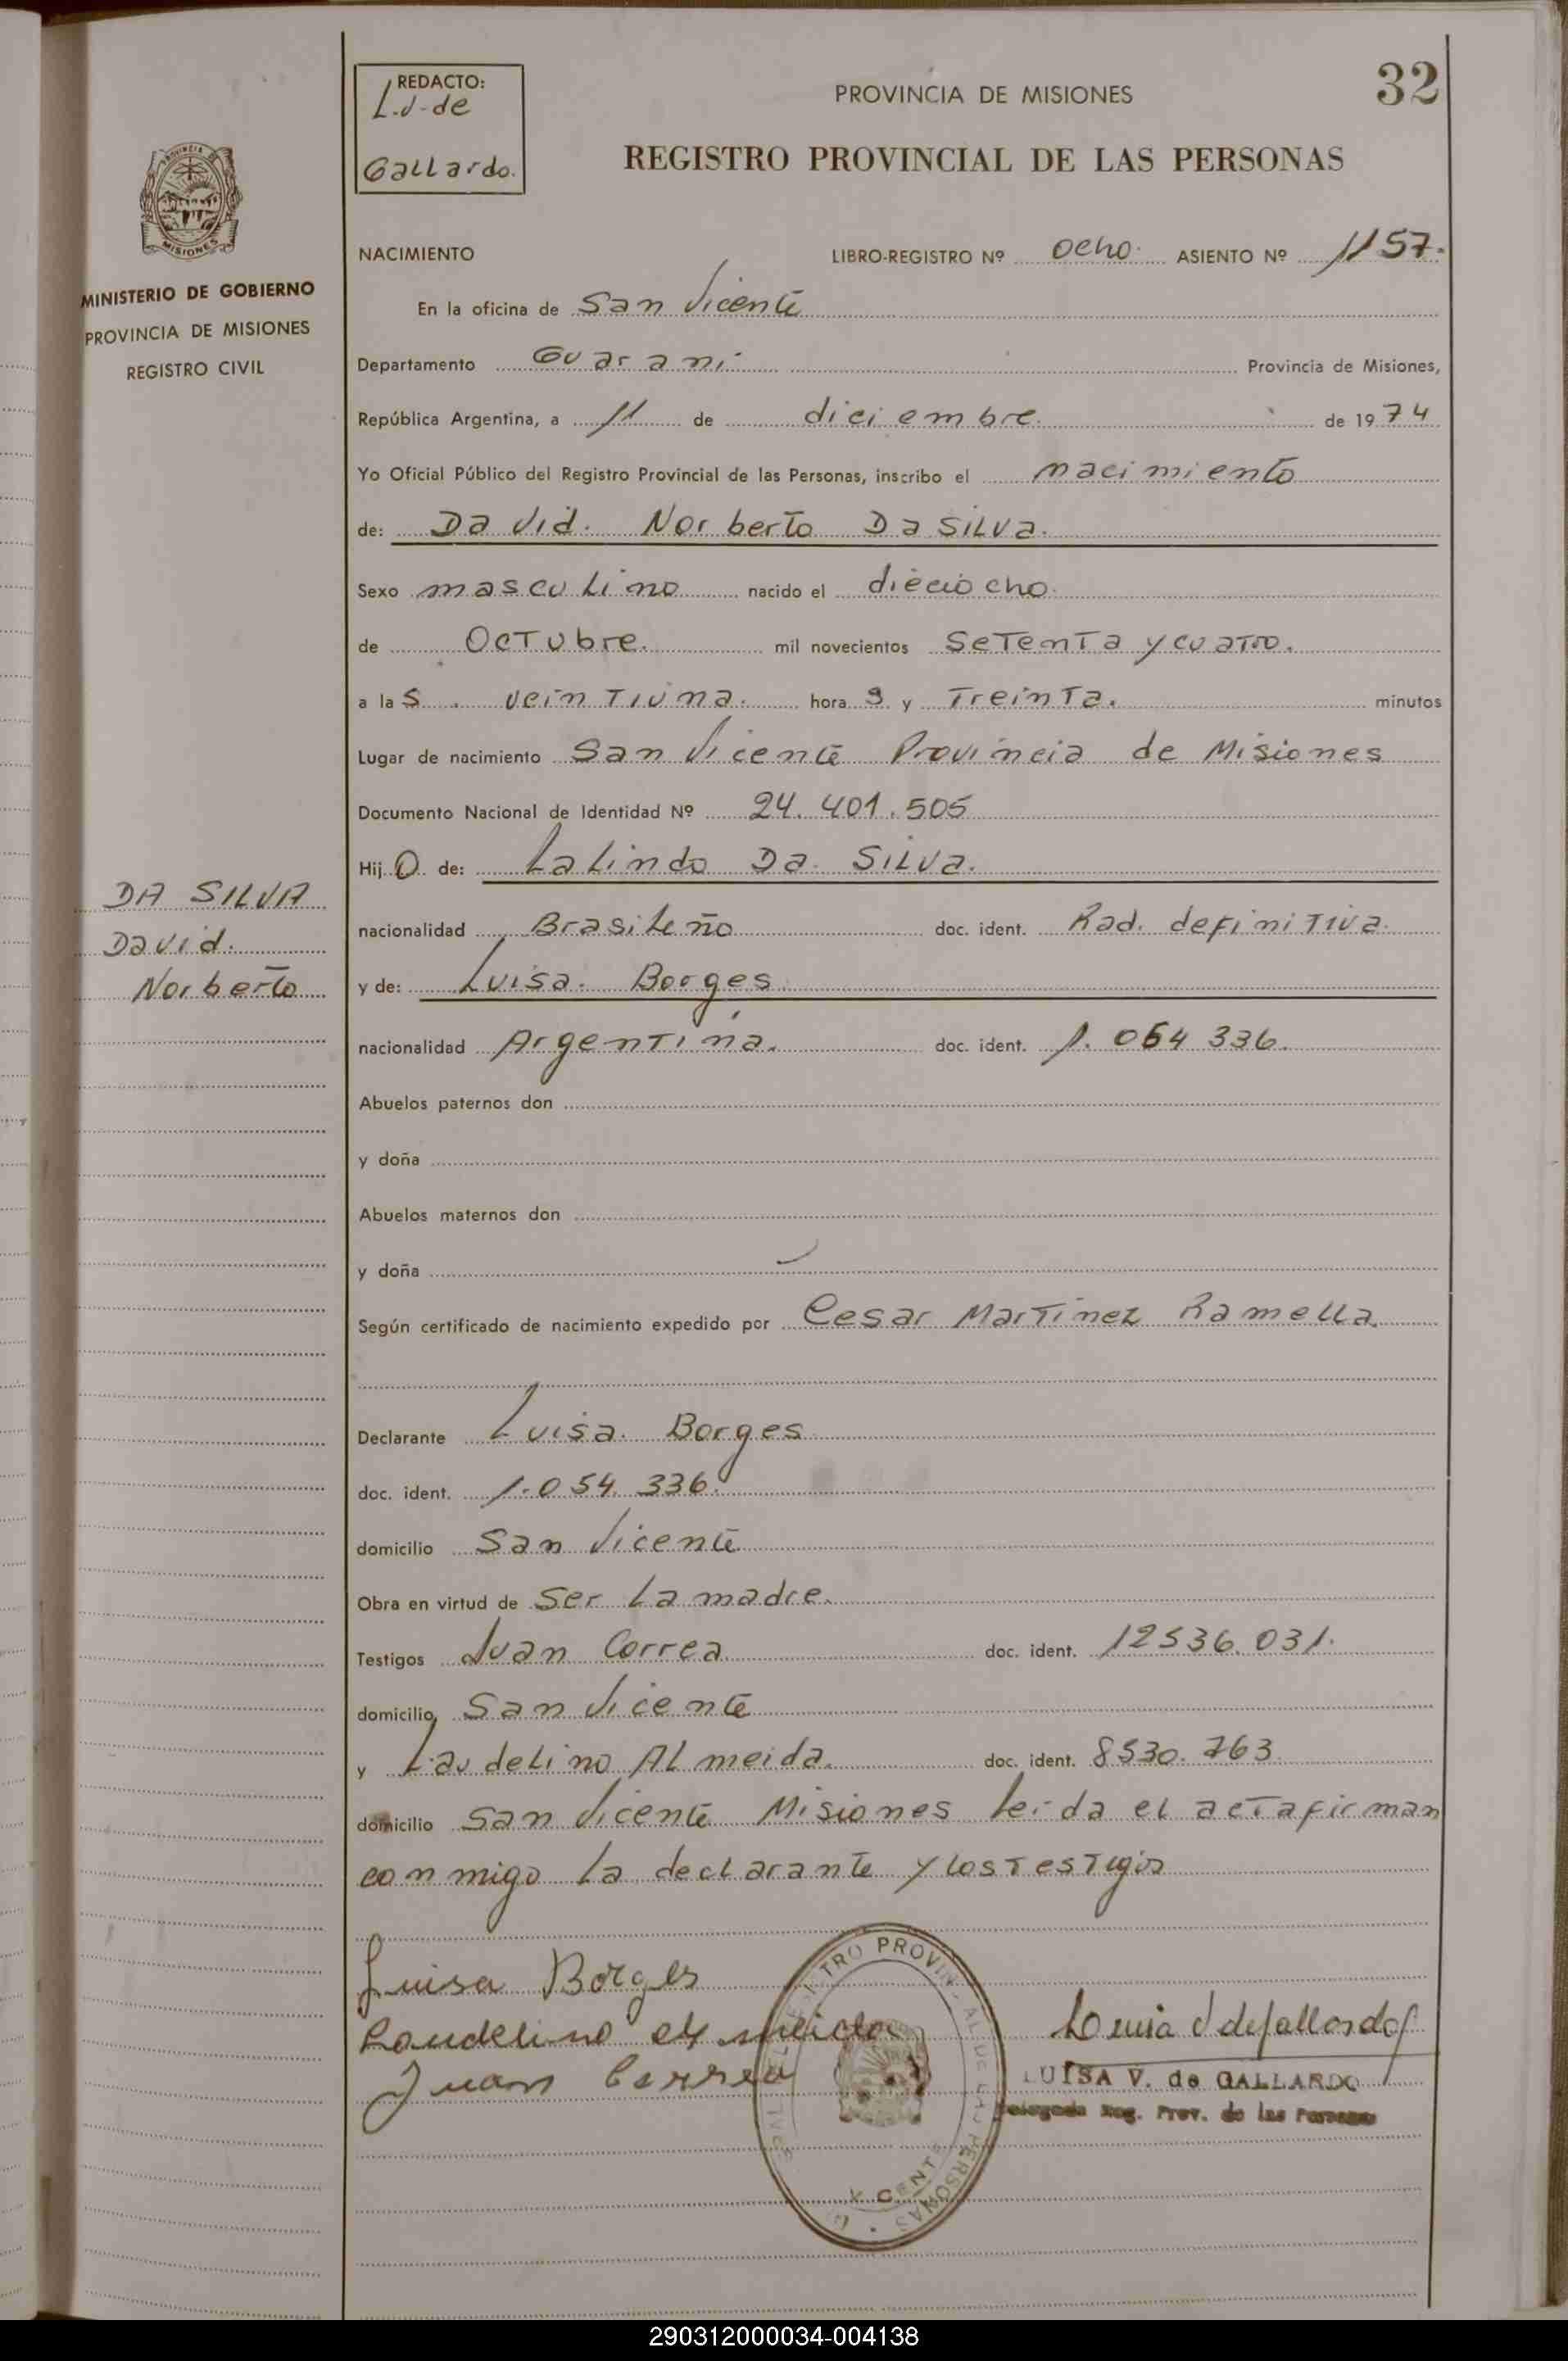 REDACTO:
L.V. de
Gallardo.
PROVINCIA DE MISIONES
32
REGISTRO PROVINCIAL DE LAS PERSONAS
MISIONES
MINISTERIO DE GOBIERNO
PROVINCIA DE MISIONES
REGISTRO CIVIL
NACIMIENTO LIBRO-REGISTRO Nº ocho. ASIENTO Nº 1157.
En la oficina de San Vicente
Departamento Guarani Provincia de Misiones,
República Argentina, a 11 de diciembre. de 1974
Yo Oficial Público del Registro Provincial de las Personas, inscribo el nacimiento
de: David. Norberto Da Silva.
Sexo masculino nacido el dieciocho.
de Octubre. mil novecientos setenta y cuatro.
a las. veintiuna. horas y treinta. minutos
Lugar de nacimiento San Vicente Provincia de Misiones
Documento Nacional de Identidad Nº 24.401.505
Hijo de: Lalindo Da. Silva.
DA SILVA
David.
Norberto
nacionalidad Brasileño doc. ident. Rad. definitiva.
y de: Luisa. Borges
nacionalidad Argentina. doc. ident. 1.064 336.
Abuelos paternos don
y doña
Abuelos maternos don
y doña
Según certificado de nacimiento expedido por Cesar Martinez Ramella.
Declarante Luisa. Borges
doc. ident. 1.054.336.
domicilio San Vicente
Obra en virtud de ser la madre.
Testigos Juan Correa doc. ident. 12536.031.
domicilio San Vicente
y Laudelino Almeida. doc. ident. 8530.763
domicilio San Vicente Misiones leida el acta firman
conmigo la declarante y los testigos
Luisa Borges
Laudelino
Juan Correa
LUISA V. de GALLARDO
Delegada Reg. Prov. de las Personas
290312000034-004138